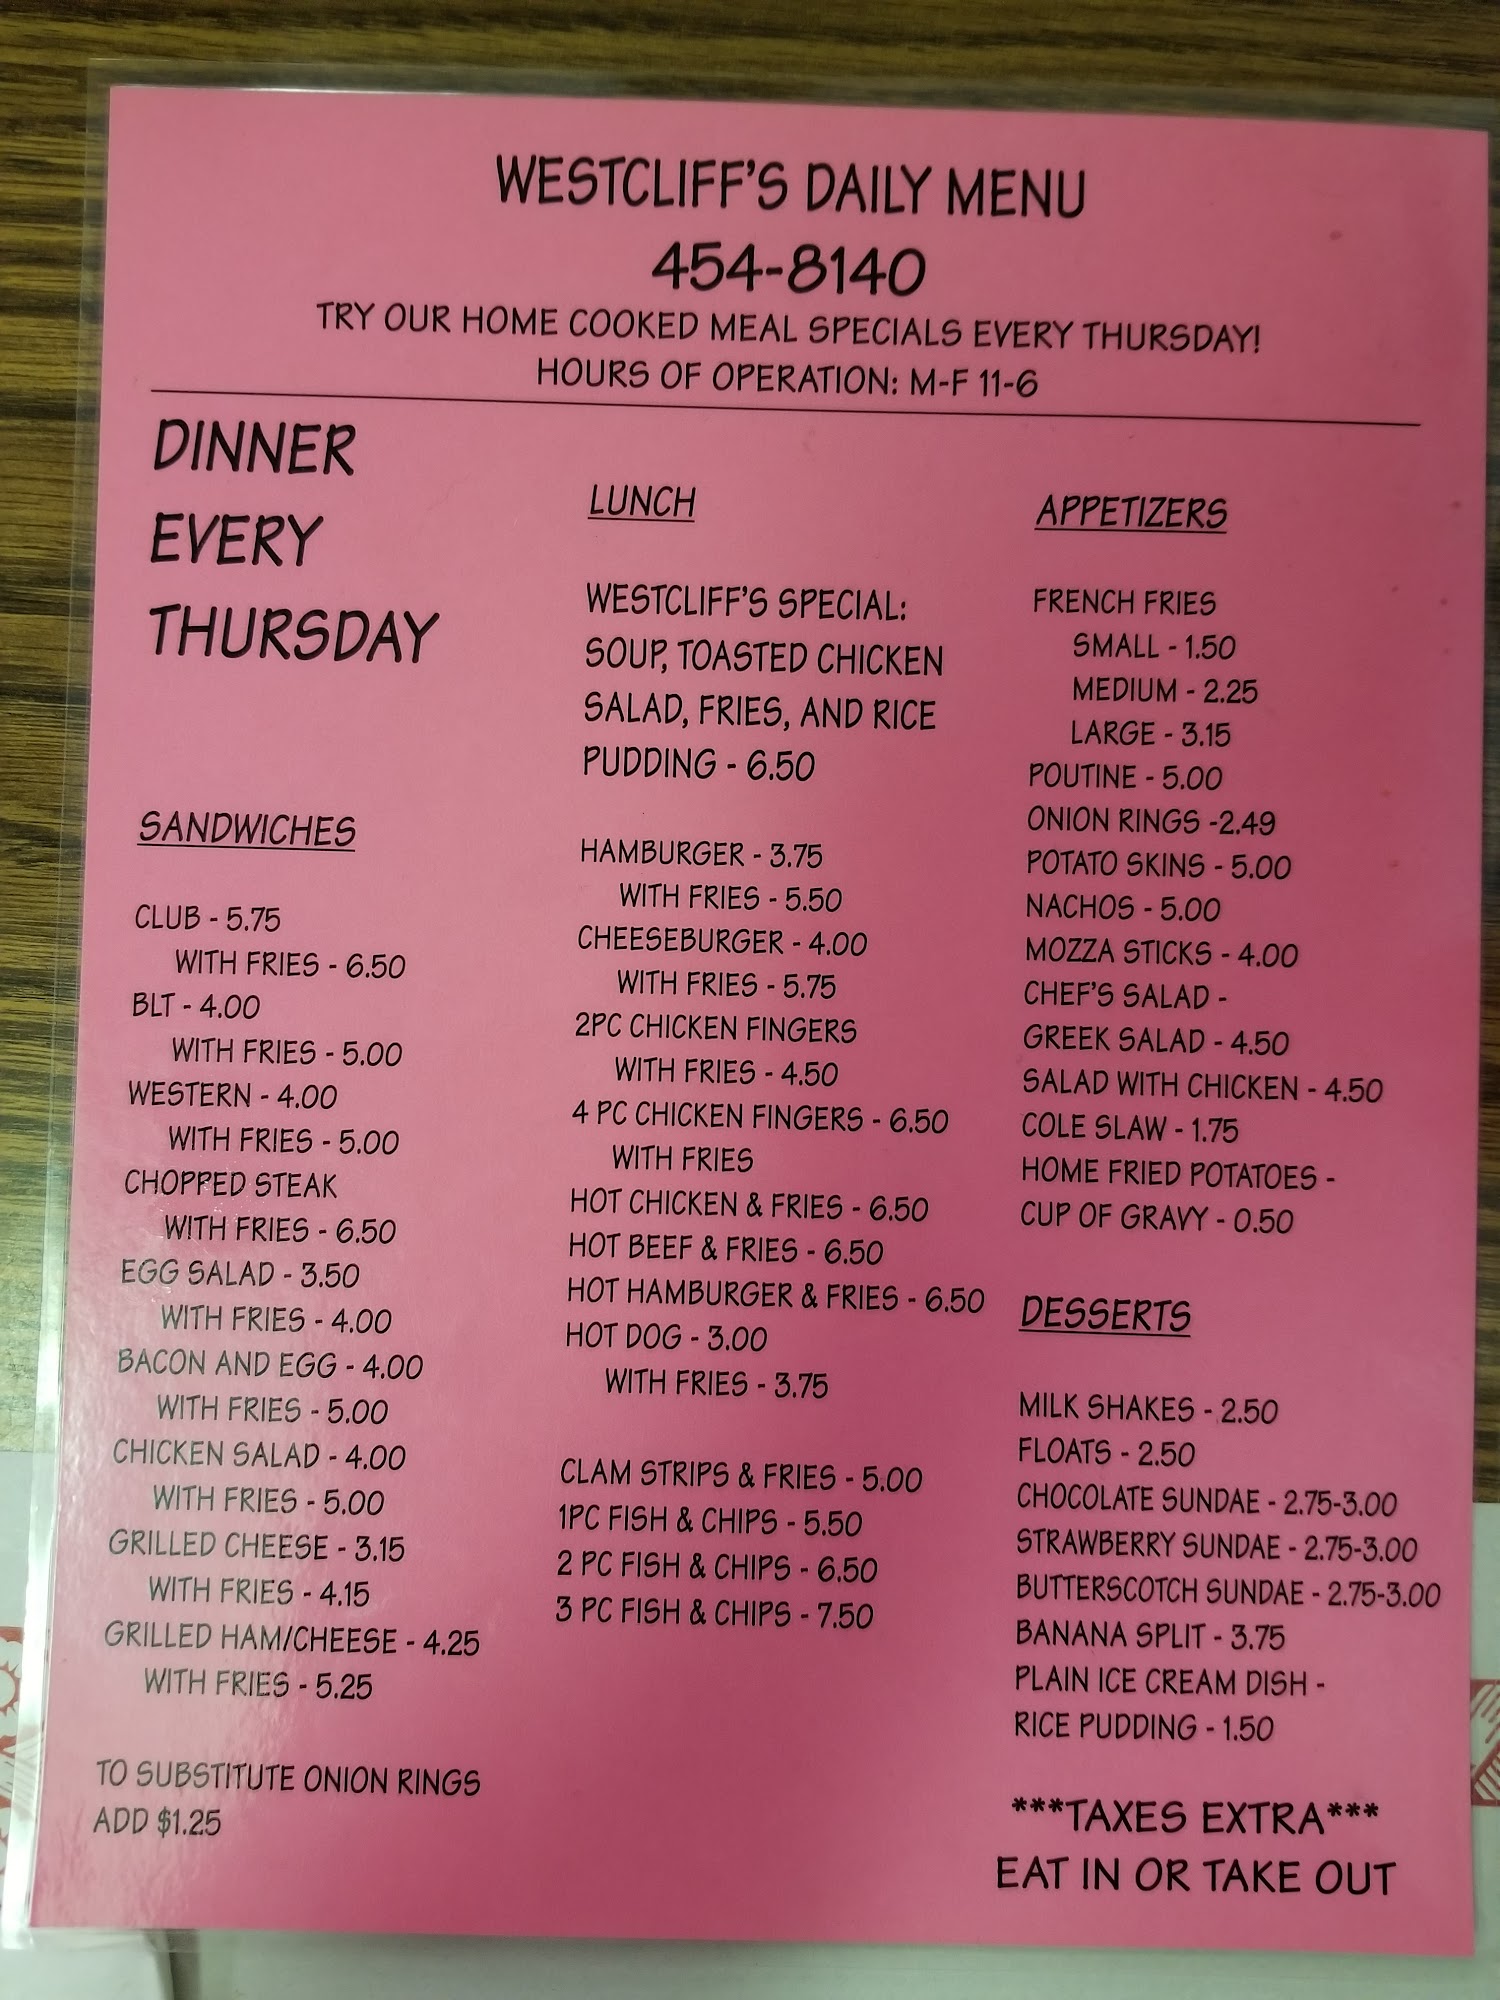 WESTCLIFF'S DAILY MENU
454-8140
TRY OUR HOME COOKED MEAL SPECIALS EVERY THURSDAY!
HOURS OF OPERATION: M-F 11-6
DINNER
EVERY
THURSDAY
SANDWICHES
CLUB - 5.75
WITH FRIES - 6.50
BLT - 4.00
WITH FRIES - 5.00
WESTERN - 4.00
WITH FRIES - 5.00
CHOPPED STEAK
WITH FRIES - 6.50
EGG SALAD - 3.50
WITH FRIES - 4.00
BACON AND EGG - 4.00
WITH FRIES - 5.00
CHICKEN SALAD - 4.00
WITH FRIES - 5.00
GRILLED CHEESE - 3.15
WITH FRIES - 4.15
GRILLED HAM/CHEESE - 4.25
WITH FRIES - 5.25
TO SUBSTITUTE ONION RINGS
ADD $1.25
LUNCH
WESTCLIFF'S SPECIAL:
SOUP, TOASTED CHICKEN
SALAD, FRIES, AND RICE
PUDDING - 6.50
HAMBURGER - 3.75
WITH FRIES - 5.50
CHEESEBURGER - 4.00
WITH FRIES - 5.75
2PC CHICKEN FINGERS
WITH FRIES - 4.50
4 PC CHICKEN FINGERS - 6.50
WITH FRIES
HOT CHICKEN & FRIES - 6.50
HOT BEEF & FRIES - 6.50
HOT HAMBURGER & FRIES - 6.50
HOT DOG - 3.00
WITH FRIES - 3.75
CLAM STRIPS & FRIES - 5.00
1PC FISH & CHIPS - 5.50
2 PC FISH & CHIPS - 6.50
3 PC FISH & CHIPS - 7.50
APPETIZERS
FRENCH FRIES
SMALL - 1.50
MEDIUM - 2.25
LARGE - 3.15
POUTINE - 5.00
ONION RINGS -2.49
POTATO SKINS - 5.00
NACHOS - 5.00
MOZZA STICKS - 4.00
CHEF'S SALAD -
GREEK SALAD - 4.50
SALAD WITH CHICKEN - 4.50
COLE SLAW - 1.75
HOME FRIED POTATOES -
CUP OF GRAVY - 0.50
DESSERTS
MILK SHAKES - 2.50
FLOATS - 2.50
CHOCOLATE SUNDAE - 2.75-3.00
STRAWBERRY SUNDAE - 2.75-3.00
BUTTERSCOTCH SUNDAE - 2.75-3.00
BANANA SPLIT - 3.75
PLAIN ICE CREAM DISH -
RICE PUDDING - 1.50
***TAXES EXTRA***
EAT IN OR TAKE OUT